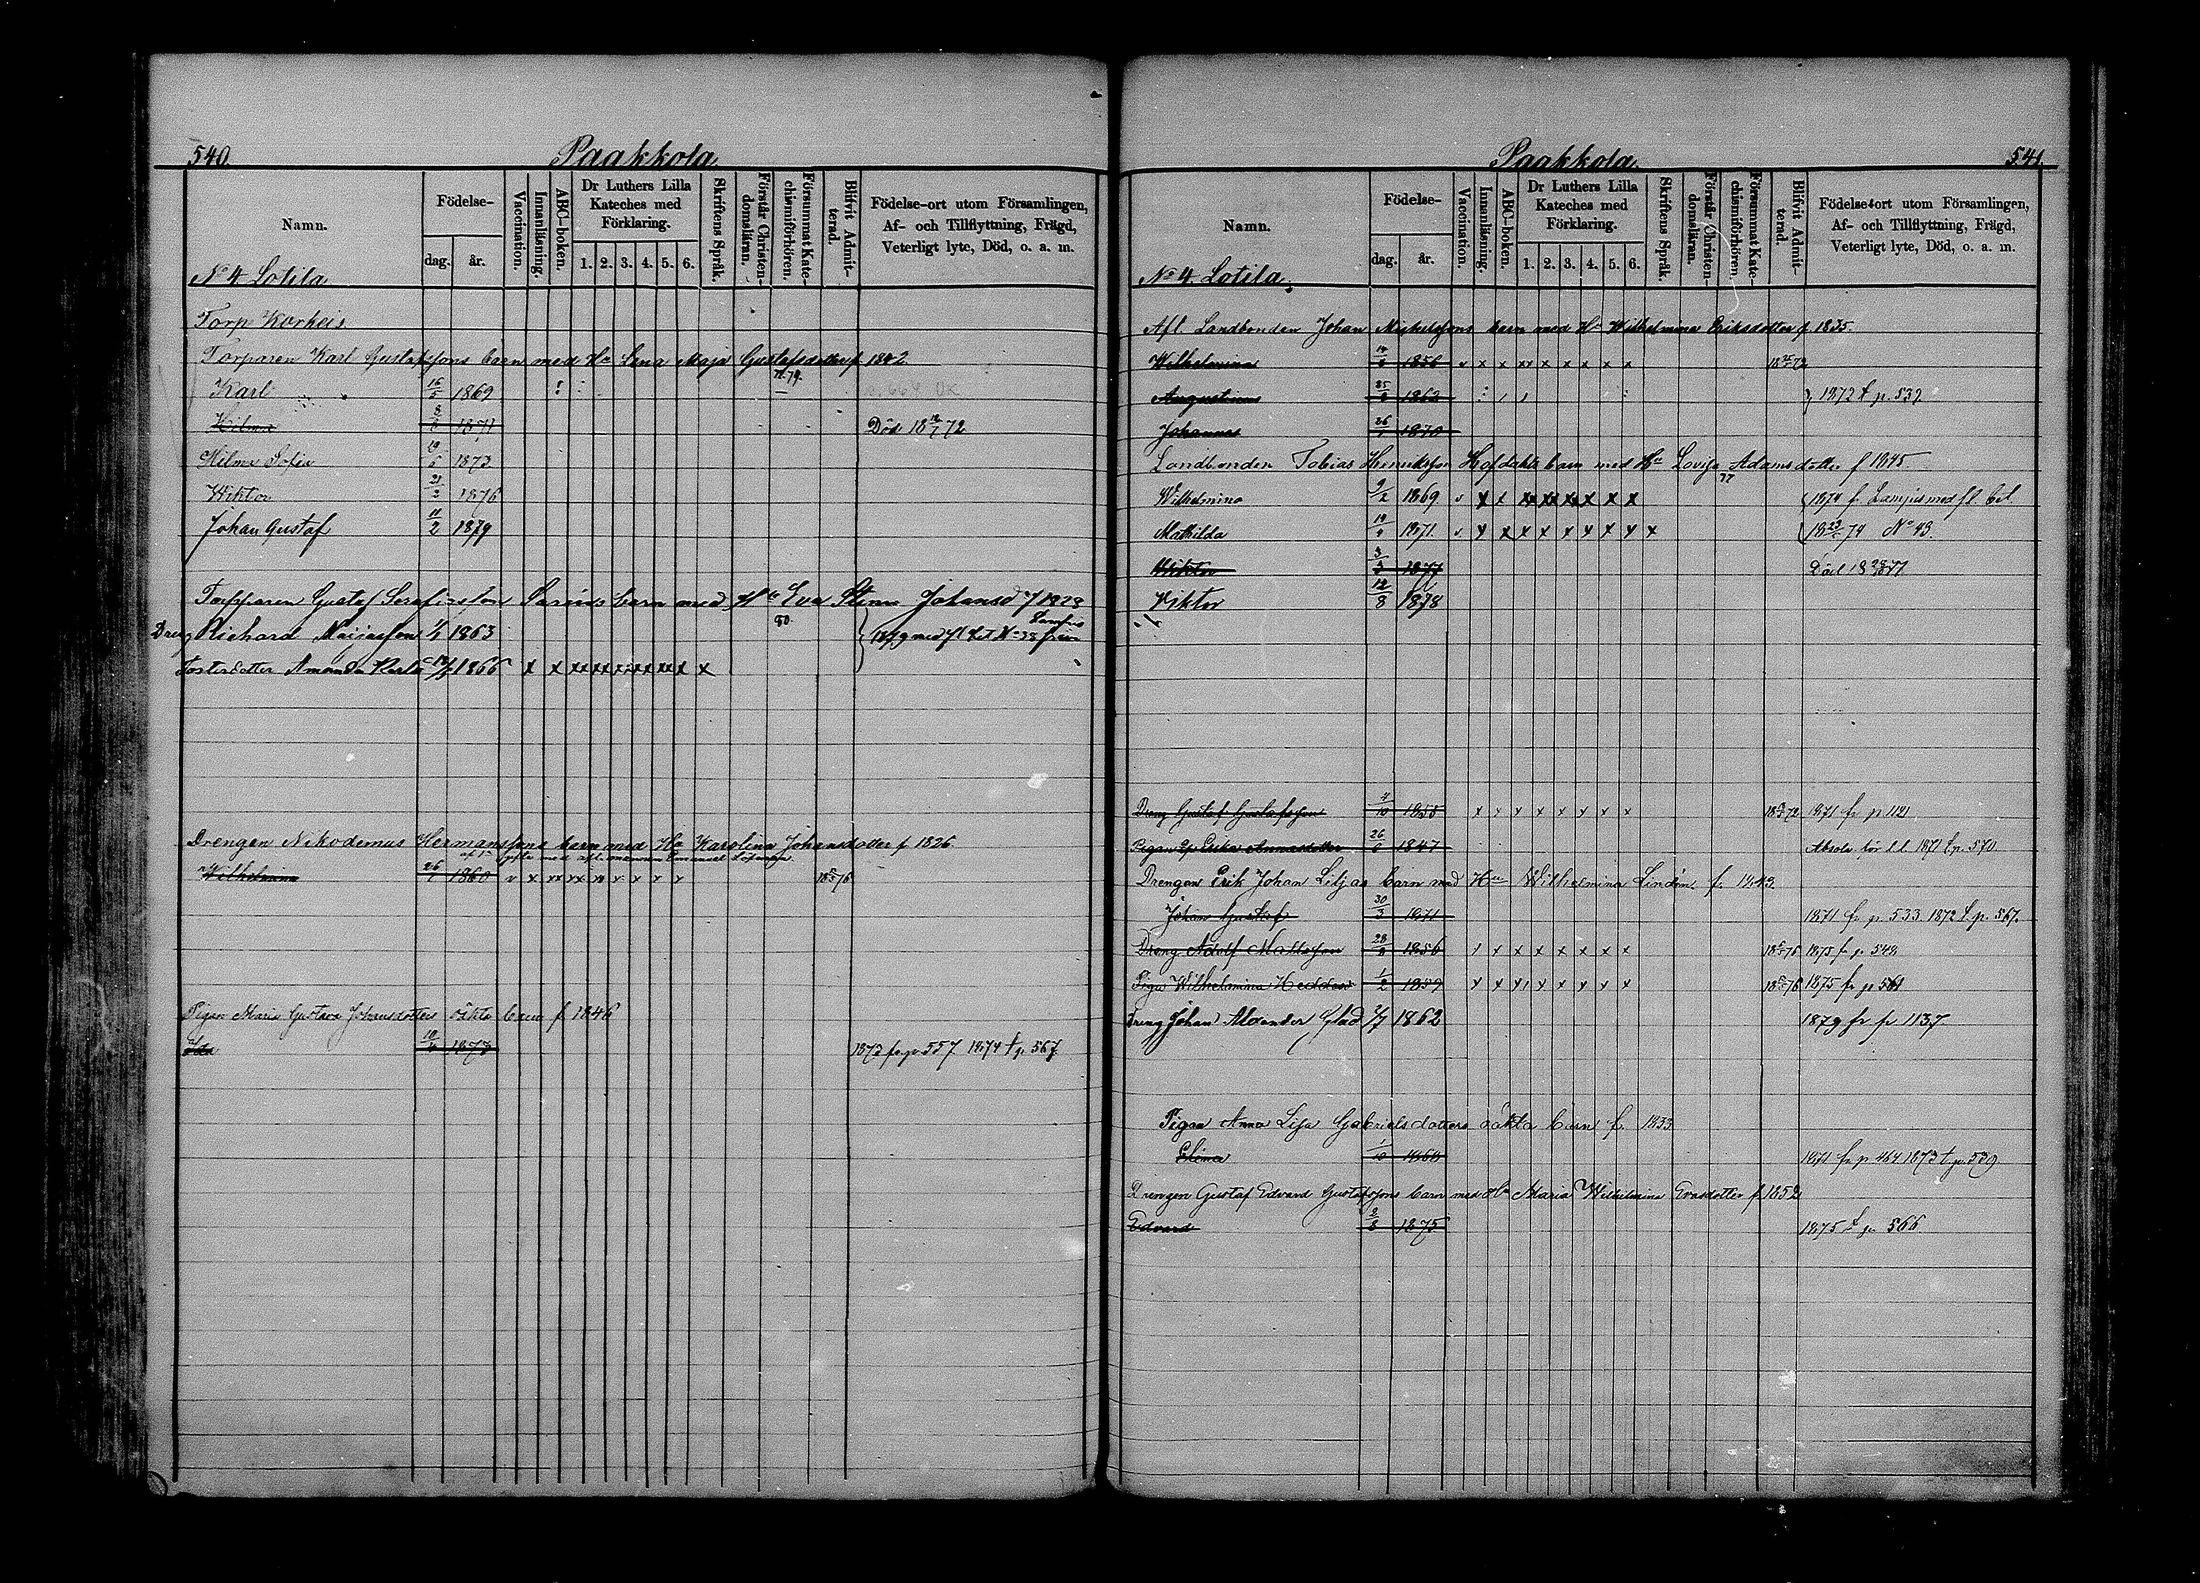 540.
Paakkola
Namn.
Födelse-
dag. år.
Vaccination.
Innanläsning.
ABC-boken.
Dr Luthers Lilla Kateches med Förklaring.
1. 2. 3. 4. 5. 6.
Skriftens Språk.
Förstår Christendomsläran.
Försummat Katechismiförhören.
Blifvit Admitterad.
Födelse-ort utom Församlingen,
Af- och Tillflyttning, Frägd,
Veterligt lyte, Död, o. a. m.
No 4 Lotila
Torp Korkeis
Torparen Karl Gustafssons barn med Hu Lena Maja Gustafsdotter f 1842
Karl 16/5 1869 79.
Hilma 1871 Död 18 72
Hilma Sofia 1873
Wiktor 21/2 1876
Johan Gustaf 11/2 1879
Torpparen Gustaf Serafinsson barn med Hu Eva Stina Johansd f 1828
Dreng Richard 1863 80. 1879 med fl bet No 38 från Lampis
Fosterdotter Amanda Karla 1866 x x xx xx x x x xx x x
Drengen Nikodemus Hermanssons barn med Hu Karolina Johansdotter f 1826
Wilhelmina 26/1 1860 v x xx xx x x x x x 18 76
Pigan Maria Gustava Johansdotters oäkta barn f 1846
Ida 1873 1873 fr p 557 1874 t p. 567
Paakkola
541.
Namn.
Födelse-
dag. år.
Vaccination.
Innanläsning.
ABC-boken.
Dr Luthers Lilla Kateches med Förklaring.
1. 2. 3. 4. 5. 6.
Skriftens Språk.
Förstår Christendomsläran.
Försummat Katechismiförhören.
Blifvit Admitterad.
Födelse-ort utom Församlingen,
Af- och Tillflyttning, Frägd,
Veterligt lyte, Död, o. a. m.
No 4. Lotila
Afl. Landbonden Johan Mickelssons barn med Hu Wilhelmina Eriksdotter f. 1835.
Wilhelmina v x x xx x x x x x 18 72
Augustinus 1863 } 1872 t p. 539
Johannes 26/1 1870
Landbonden Tobias Henriksson barn med Hu Lovisa Adamsdotter f 1845
Wilhelmina 9/2 1869 v x x xx xx xx x x x 77 1874 f. Lampis med fl. bet
Mathilda 1871. v x x x x x x x x x 18 74 No 43.
Wiktor 1877 Död 18 77
Viktor 12/8 1878
Dreng Gustaf Gustafsson 4/10 x x x x x x x x 18 72 1871 fr p 1121
Pigan Erika Annasdotter 1847 1871 t p. 570
Drengen Erik Johan Liljas barn med Hu Wilhelmina Lindén f. 1843
Johan Gustaf 30/3 1871 1871 fr p. 533. 1872 t p. 567.
Dreng Adolf Mattsson 28/8 1856 x x x x x x x 18 76 1875 fr p. 548
Piga Wilhelmina 1/2 1859 x x x x x x x x 18 76 1875 fr p 561
Dreng Johan Alexander Glad 1862 1879 fr p 1137
Pigan Anna Lisa Gabrielsdotters oäkta barn f. 1833
1/10 1871 fr p 464 1873 t p. 539
Drengen Gustaf Edvard Gustafssons barn med Hu Maria Wilhelmina Evasdotter f. 1852
Edvard 2/8 1875 1875 t p. 566